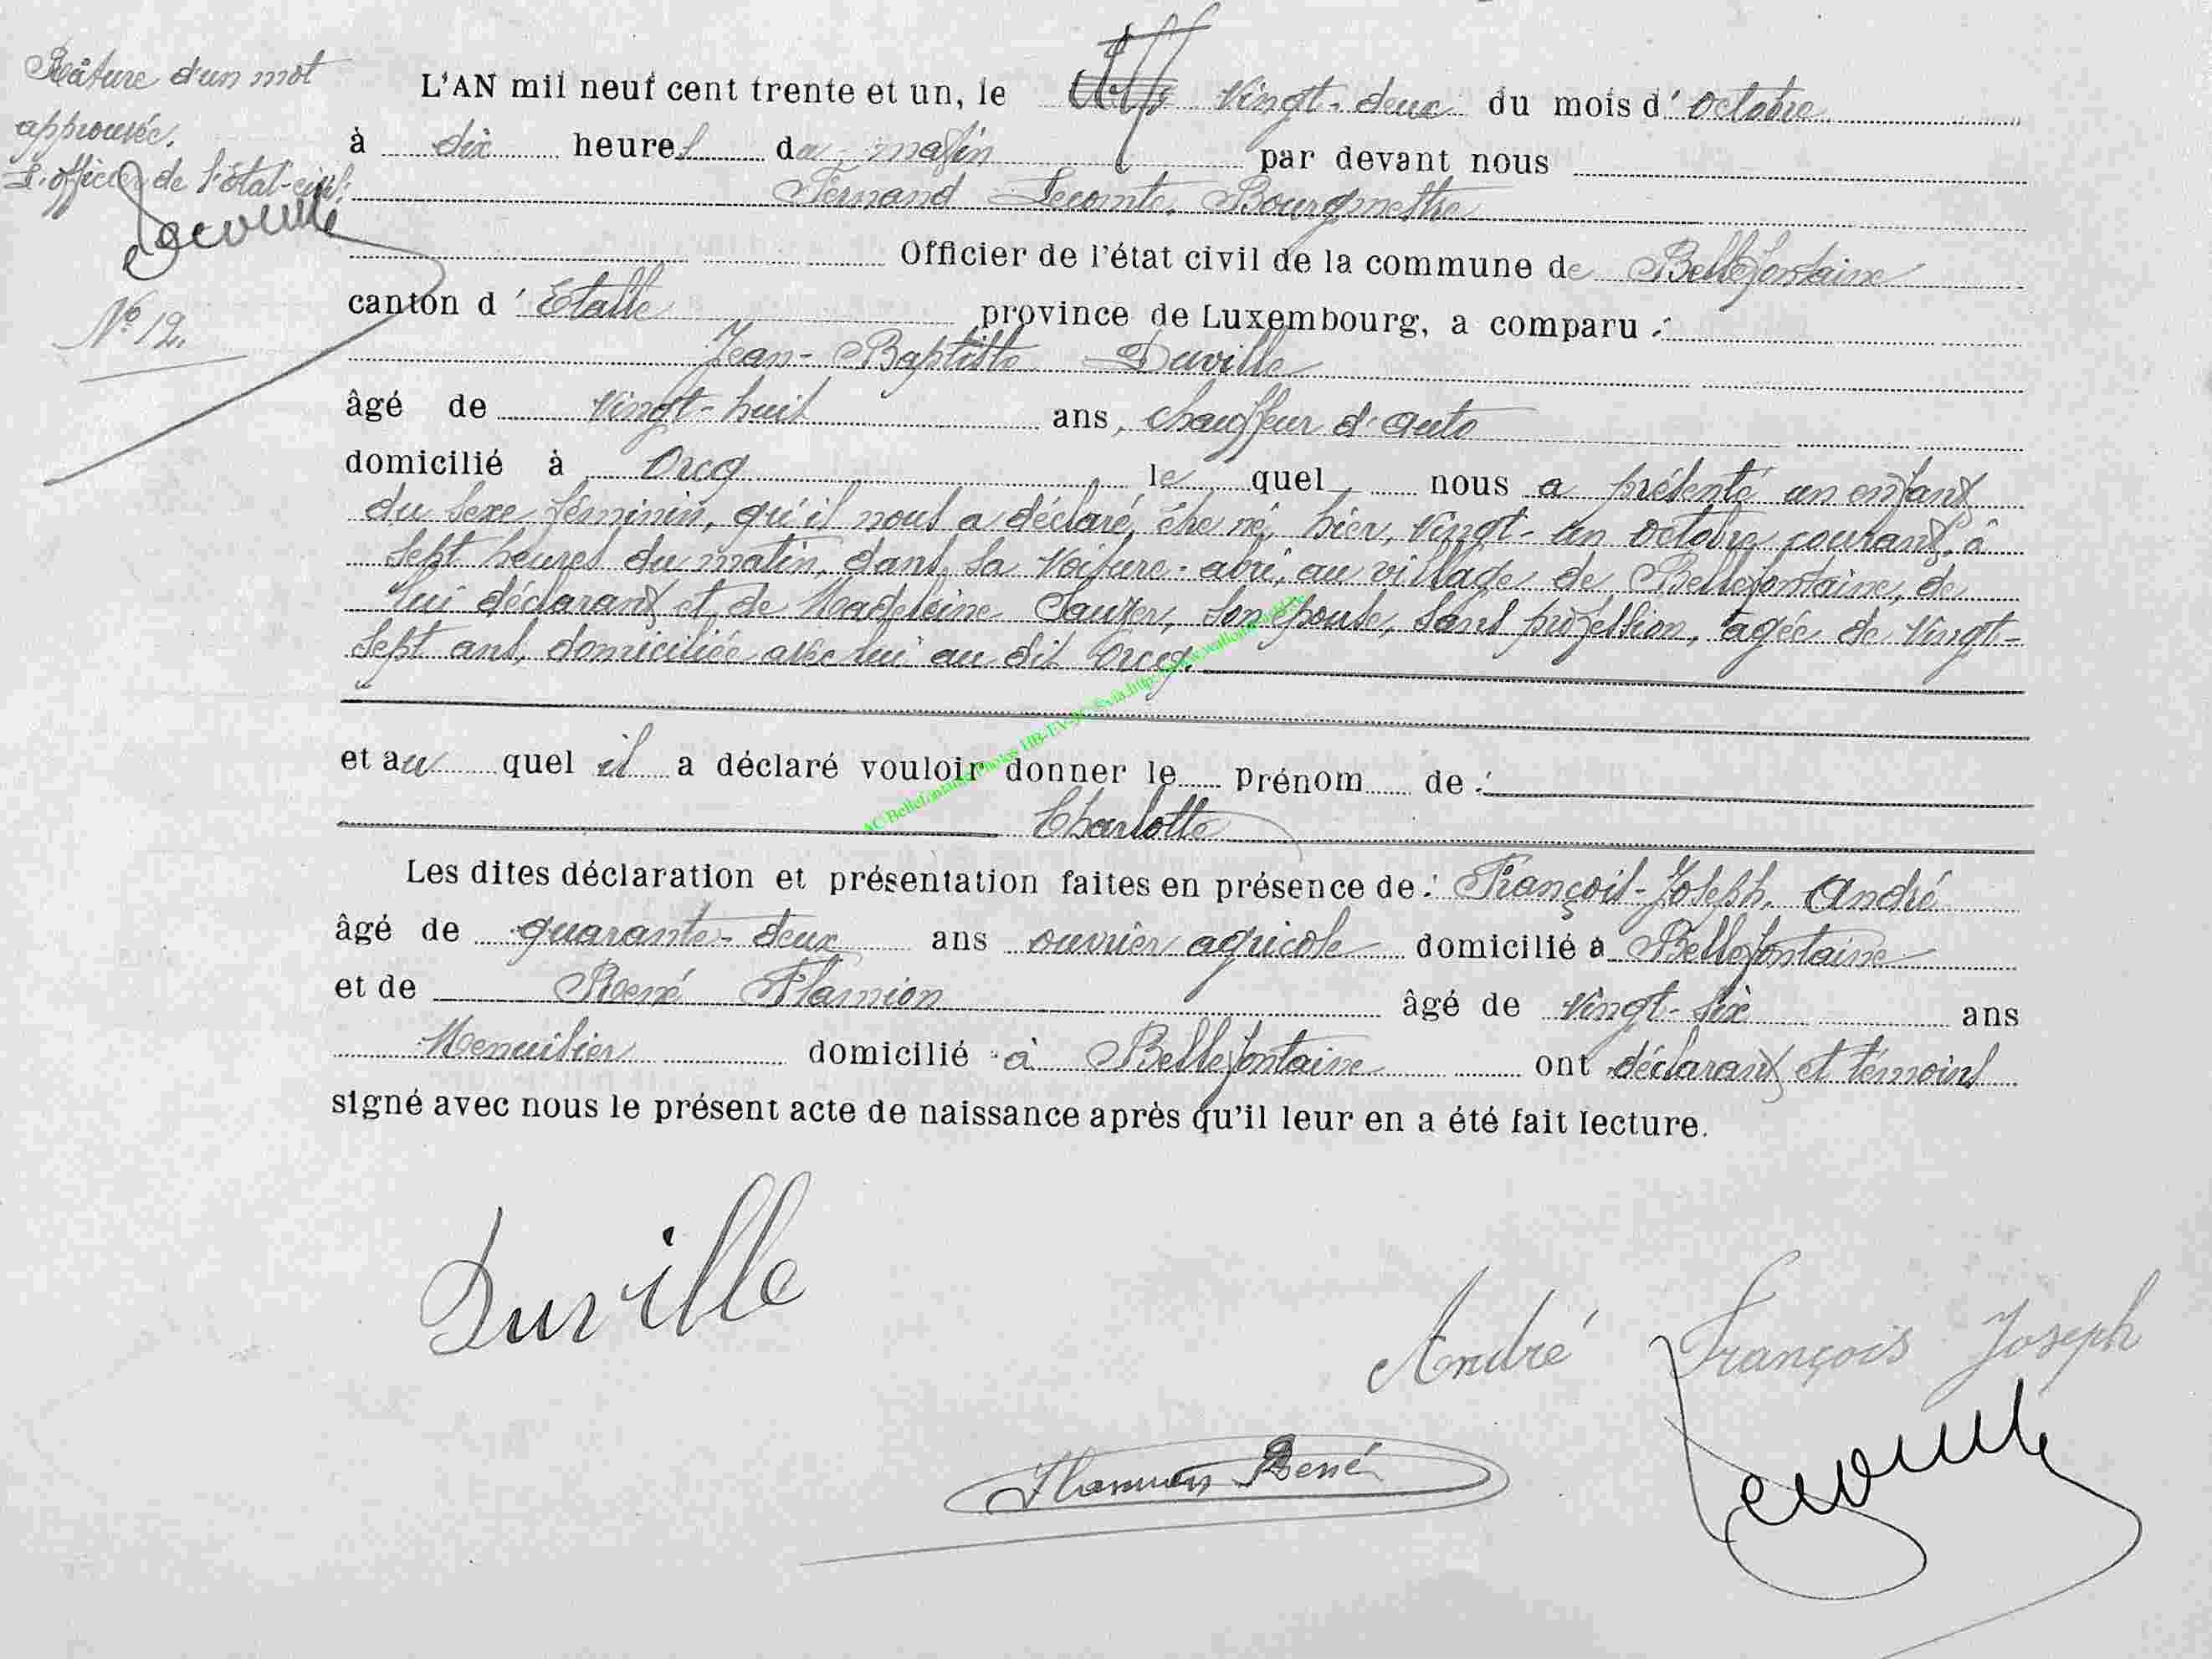 Râture d'un mot
approuvée.
L'officier de l'état-civil:
Lecomte
N° 12.
L'AN mil neuf cent trente et un, le vingt-deux du mois d'octobre
à dix heures du matin par devant nous
Fernand Lecomte, Bourgmestre
Officier de l'état civil de la commune de Bellefontaine
canton d'Etalle province de Luxembourg, a comparu :
Jean-Baptiste Duville
âgé de vingt-huit ans, chauffeur d'auto
domicilié à Orcq le quel nous a présenté un enfant
du sexe féminin, qu'il nous a déclaré être né, hier, vingt-un octobre courant, à
sept heures du matin, dans sa voiture-abri, au village de Bellefontaine, de
lui déclarant et de Madeleine Sauzer, son épouse, sans profession, âgée de vingt-
sept ans, domiciliée avec lui au dit Orcq.
et au quel il a déclaré vouloir donner le prénom de :
Charlotte
Les dites déclaration et présentation faites en présence de : François-Joseph André
âgé de quarante-deux ans ouvrier agricole domicilié à Bellefontaine
et de René Flamion âgé de vingt-six ans
Menuisier domicilié à Bellefontaine ont déclarant et témoins
signé avec nous le présent acte de naissance après qu'il leur en a été fait lecture.
Duville
André François Joseph
Flamion René
Lecomte